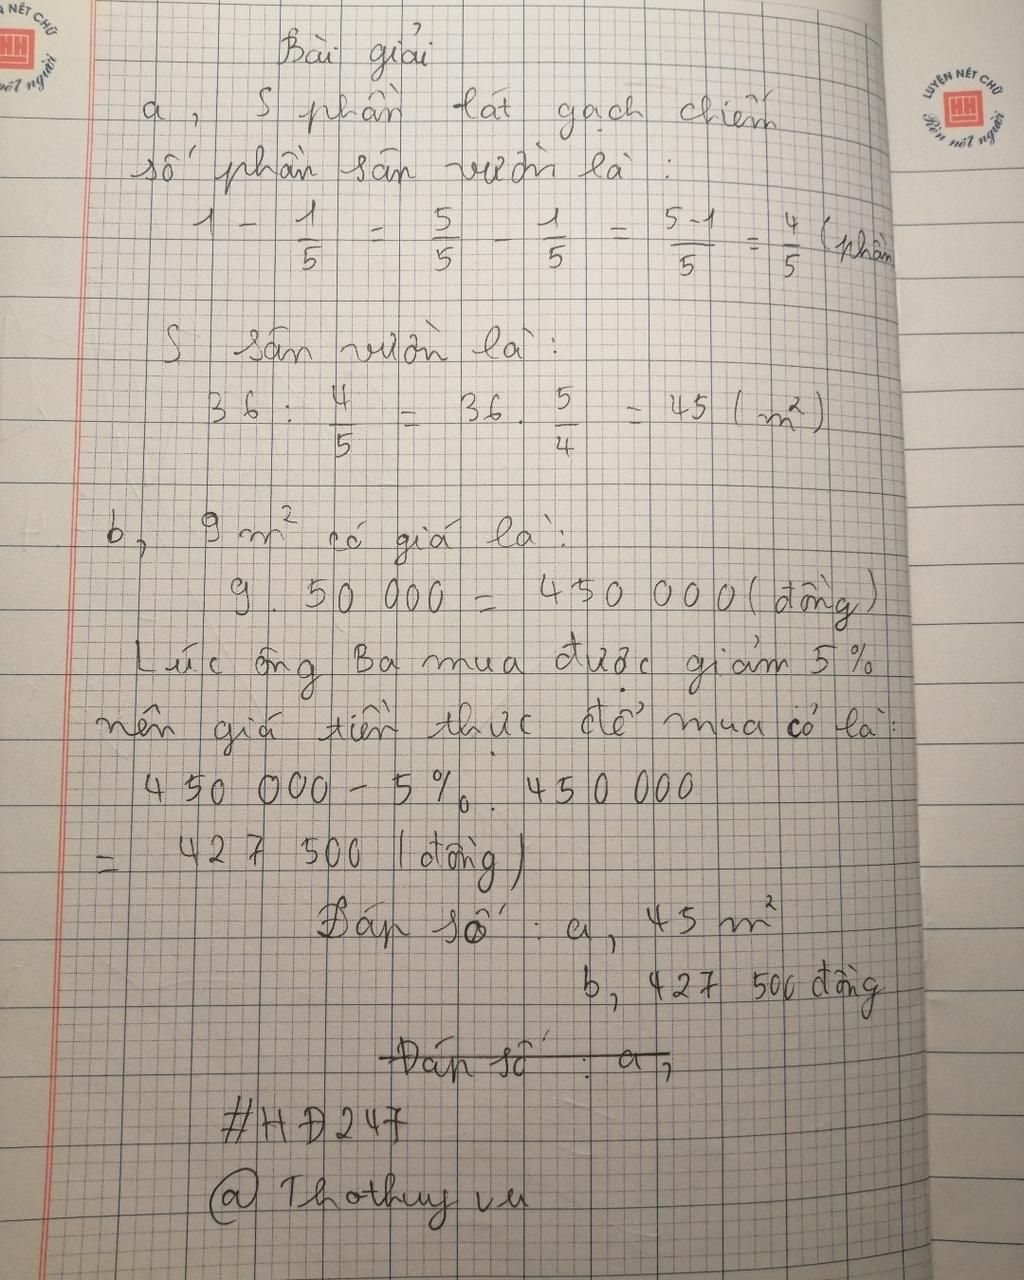 N NÉT CHỮ
HH
nết người
LUYỆN NÉT CHỮ
HH
Rèn nết người
Bài giải
a, S phần lát gạch chiếm
số phần sân vườn là :
1 - 1/5 = 5/5 - 1/5 = 5-1/5 = 4/5 (phần
S sân vườn là :
36 : 4/5 = 36 . 5/4 = 45 (m²)
b, 9 m² có giá là :
9 . 50 000 = 450 000 (đồng)
Lúc ông Ba mua được giảm 5%
nên giá tiền thực để mua cỏ là :
450 000 - 5% . 450 000
= 427 500 (đồng)
Đáp số : a, 45 m²
b, 427 500 đồng
Đáp số : a,
#HĐ247
@Thothuy vu